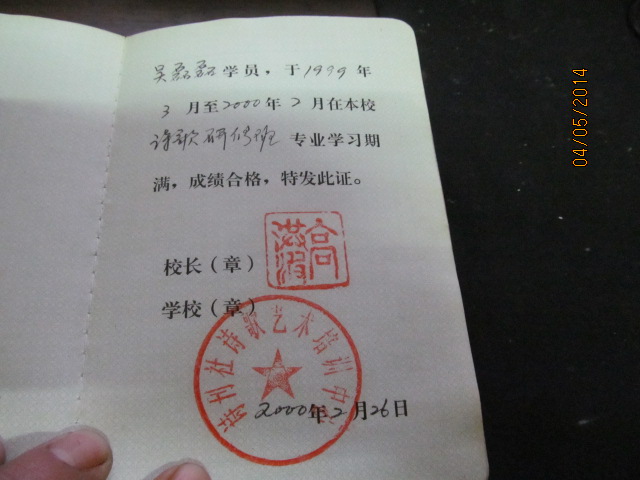 吴磊磊学员，于1999年
3月至2000年2月在本校
诗歌研修班 专业学习期
满，成绩合格，特发此证。
高洪波
校长（章）
学校（章）
诗刊社诗歌艺术培训中心
2000年2月26日
04/05/2014